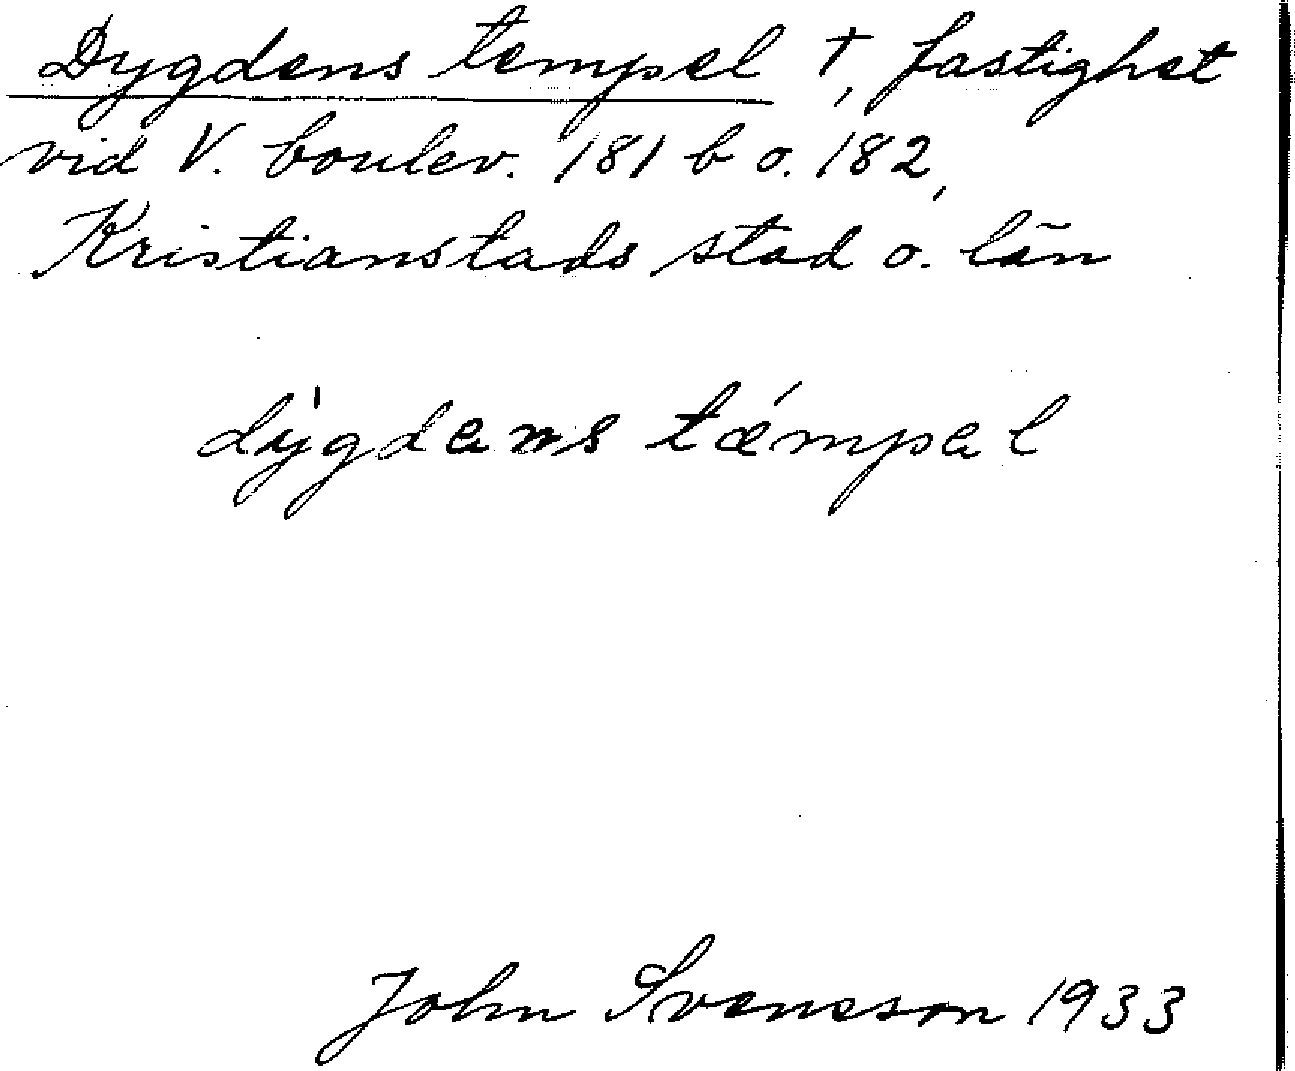 Dygdens tempel †, fastighet
vid V. boulev. 181 b o. 182,
Kristianstads stad o. län
dýgdens tǽmpel
John Svensson 1933